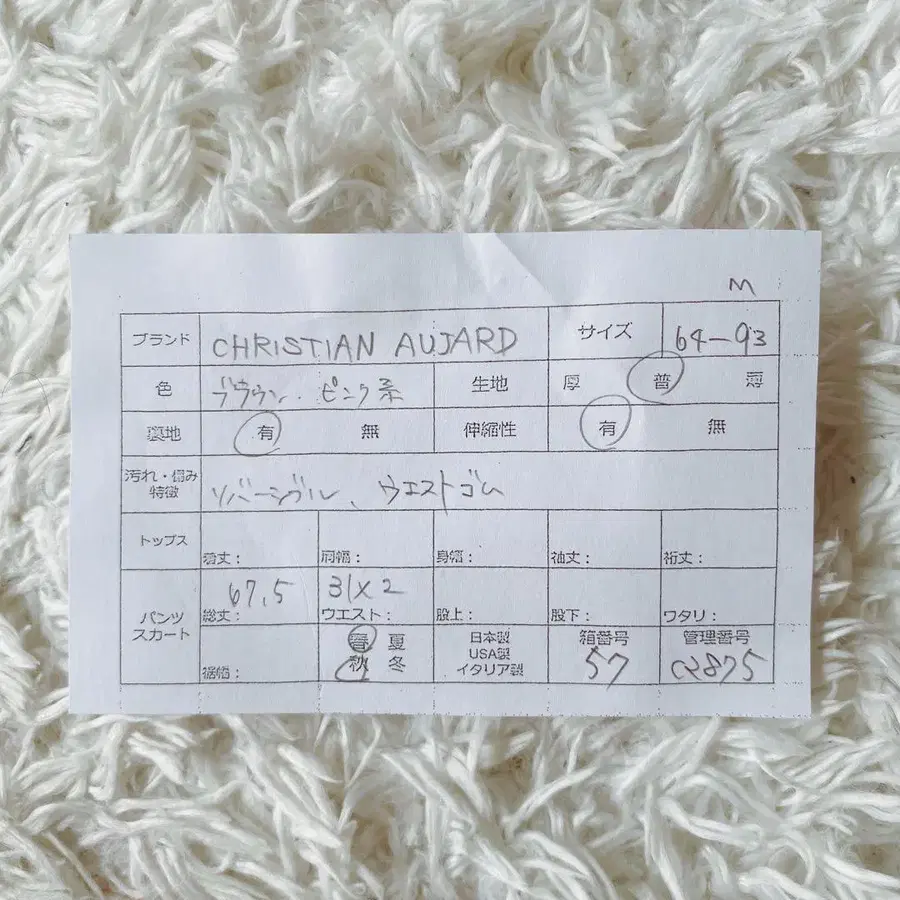 M
ブランド CHRISTIAN AUJARD サイズ 64-93
色 ブラウン.ピンク系 生地 厚 普 薄
裏地 有 無 伸縮性 有 無
汚れ・傷み
特徴 リバーシブル、ウエストゴム
トップス 着丈: 肩幅: 身幅: 袖丈: 裄丈:
67.5 31×2
パンツ
スカート
総丈: ウエスト: 股上: 股下: ワタリ:
裾幅: 春 夏 秋 冬
日本製
USA製
イタリア製
箱番号 管理番号
57 C2875